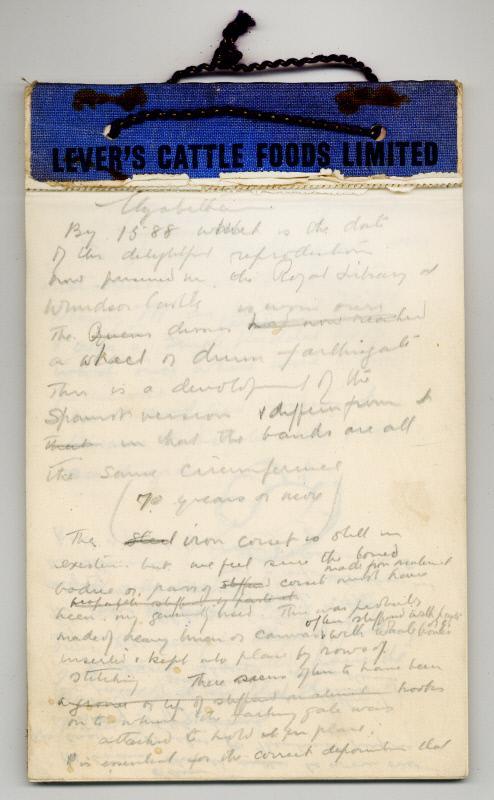 LEVER'S CATTLE FOODS LIMITED
Elizabethan
By 1588 which is the date
of this delightful reproduction
now preserved in the Royal Library at
Windsor Castle
The Queens dress has now reached
a wheel or drum farthingale
This is a development of the
Spanish version & differs from it
in that the bands are all
the same circumference
(70 years or more)
The steel iron corset is still in
existence but we feel sure the boned
bodice or pair of stiffened corset made from material must have
been very generally used. This was probably
made of heavy linen or canvas often stiffened with paste & with whale bones
inserted & kept into place by rows of
stitching. There seems often to have been
of stiffened material hooks
on to which the farthingale was
attached to hold it in place.
It is essential for the correct deportment that